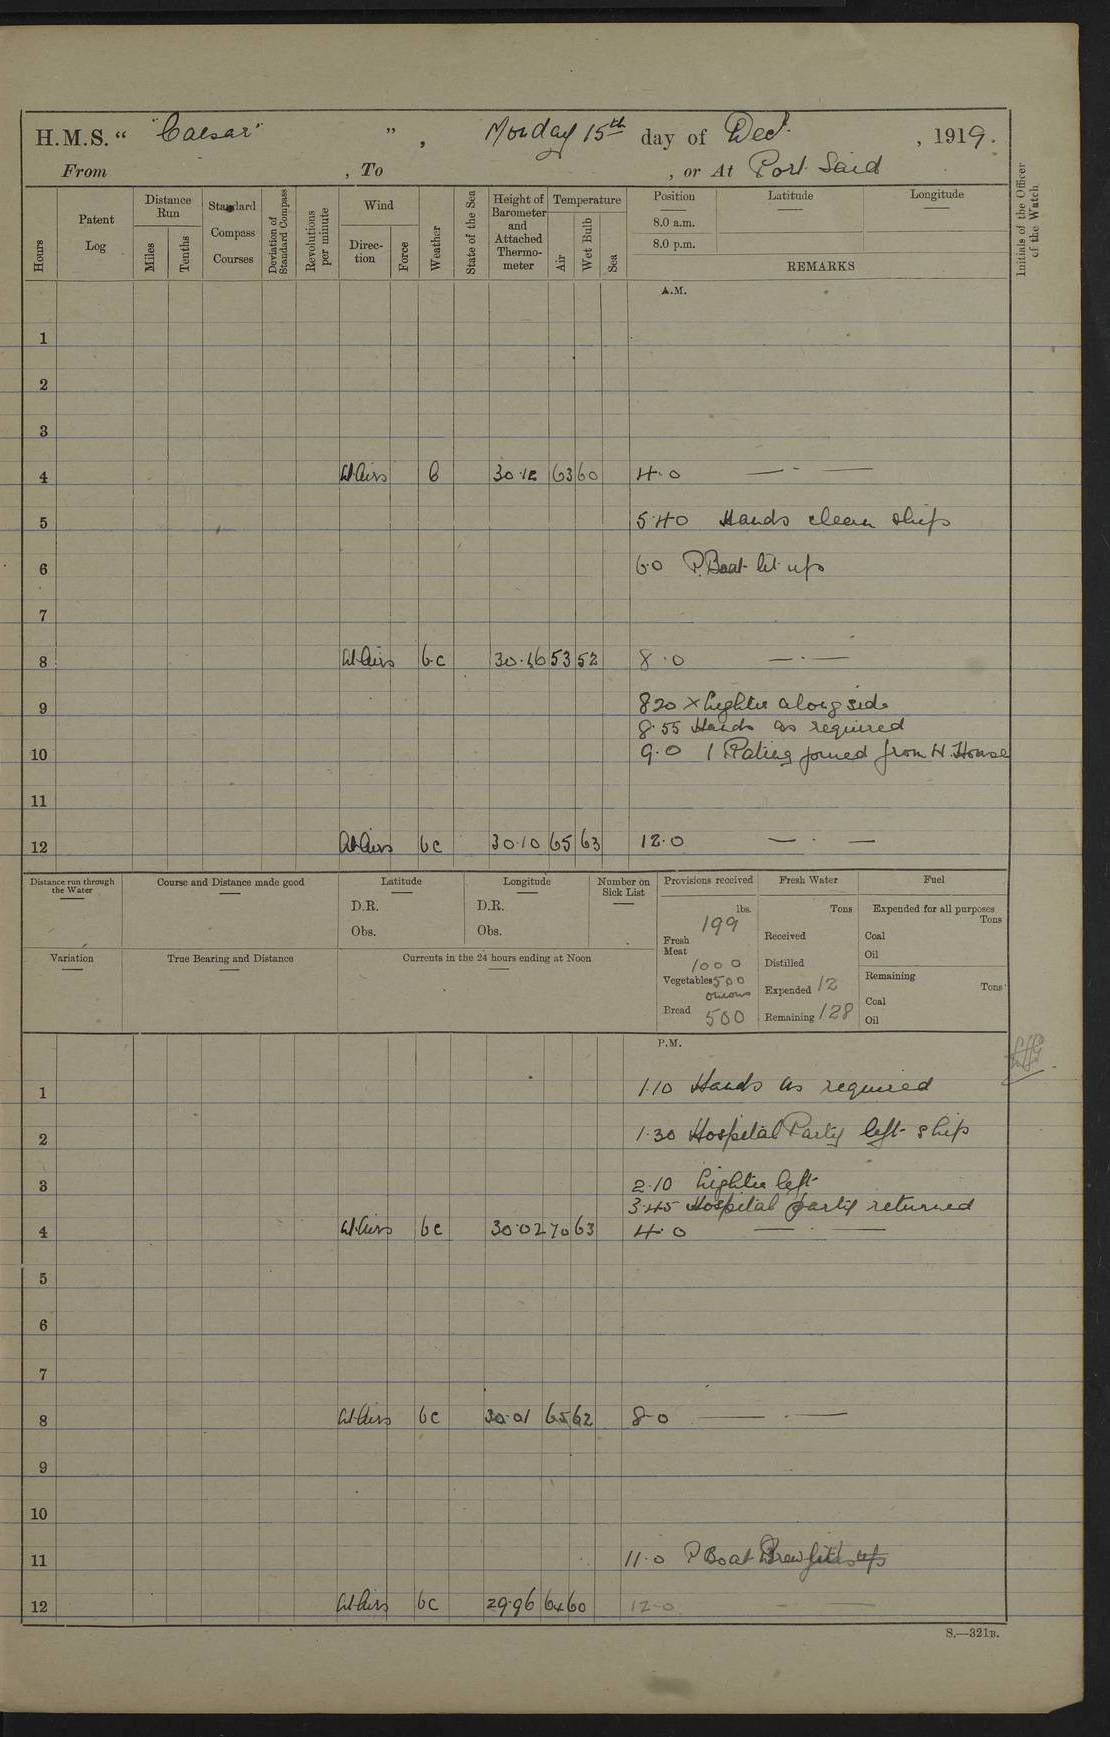 H.M.S. " "Caesar" ", Monday 15th day of Dec., 1919.
From , To , or At Port Said
Hours
Patent Log
Distance Run
Miles
Tenths
Standard Compass Courses
Deviation of Standard Compass
Revolutions per minute
Wind
Direction
Force
Weather
State of the Sea
Height of Barometer and Attached Thermometer
Temperature
Air
Wet Bulb
Sea
Position Latitude Longitude
8.0 a.m.
8.0 p.m.
REMARKS
Initials of the Officer of the Watch.
A.M.
1
2
3
4 Lt Airs b 30.12 63 60 4.0 — . —
5 5.40 Hands clean ship
6 6.0 P. Boat lit up
7
8 Lt Airs b.c 30.16 53 52 8.0 — . —
9 8 20 × Lighter alongside
8.55 Hands as required
10 9.0 1 Rating joined from N. House
11
12 Lt Airs bc 30.10 65 63 12.0 — . —
Distance run through the Water
Course and Distance made good
Latitude
D.R.
Obs.
Longitude
D.R.
Obs.
Number on Sick List
Provisions received
lbs.
Fresh Meat 199
Vegetables 1000
500 onions
Bread 500
Fresh Water
Tons
Received
Distilled
Expended 12
Remaining 128
Fuel
Expended for all purposes
Tons
Coal
Oil
Remaining
Tons
Coal
Oil
Variation
True Bearing and Distance
Currents in the 24 hours ending at Noon
P.M.
1 1.10 Hands as required
2 1.30 Hospital Party left ship
3 2.10 Lighter left
3.45 Hospital party returned
4 Lt Airs bc 30.02 70 63 4.0 — . —
5
6
7
8 Lt Airs bc 30.01 65 62 8.0 — . —
9
10
11 11.0 P Boat Drew fires up
12 Lt Airs bc 29.96 64 60 12.0 — —
S.—321B.